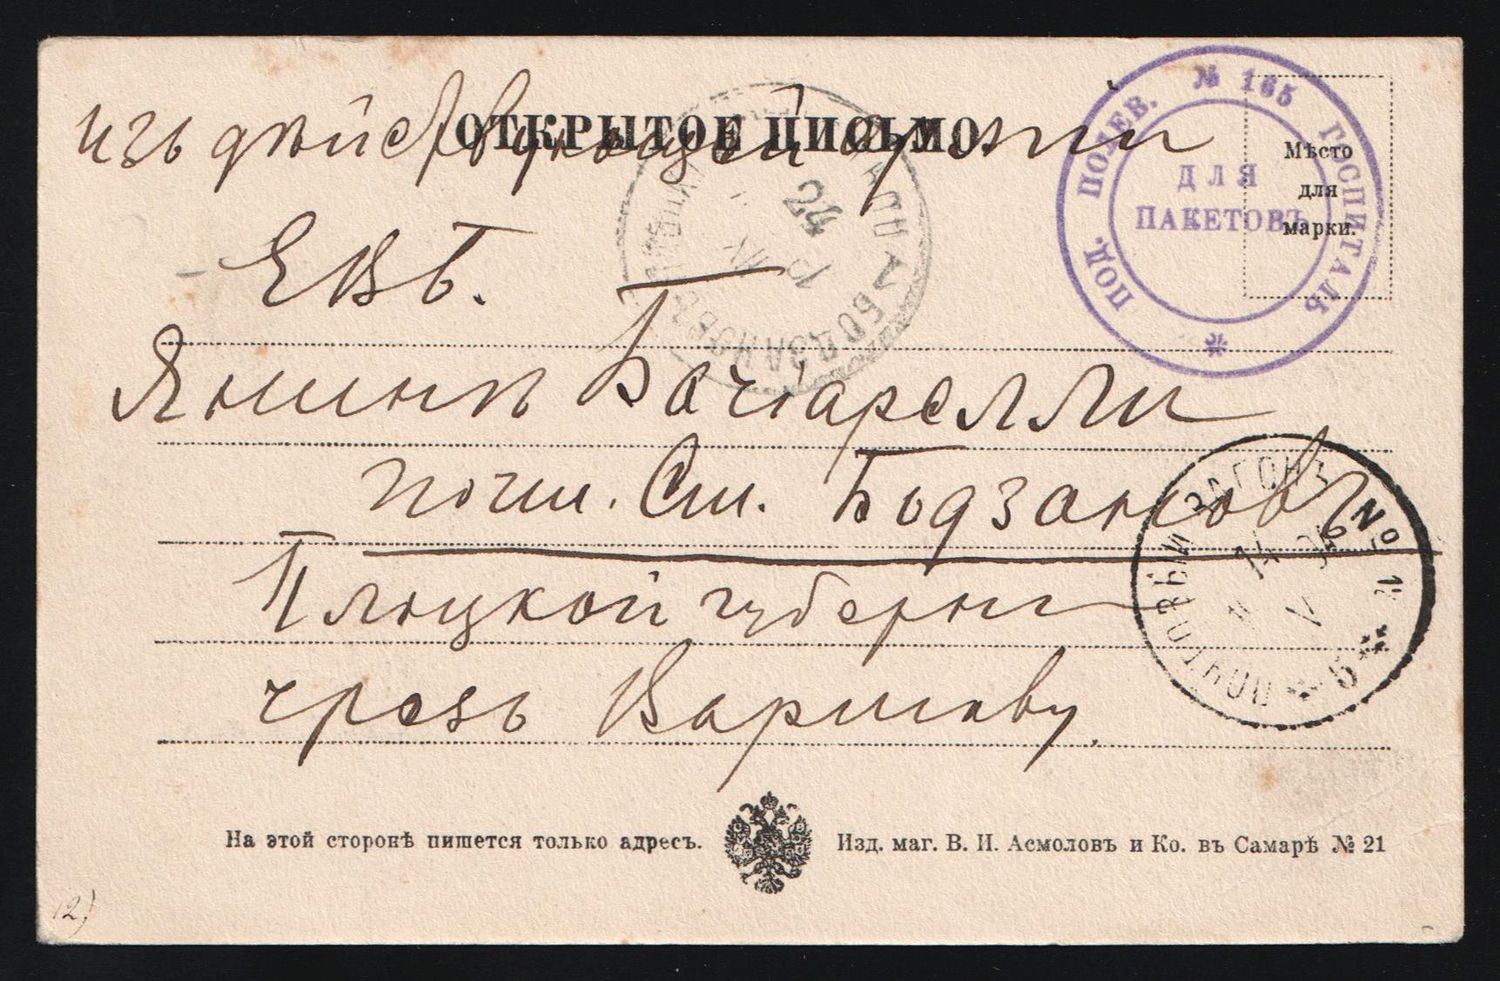 ОТКРЫТОЕ ПИСЬМО.
изъ дѣйствующей арміи
ПОД. ПОЛЕВ. № 165 ГОСПИТАЛЬ
ДЛЯ
ПАКЕТОВЪ
Мѣсто
для
марки.
24
БОДЗАНОВЪ
ЕВБ.
Янинѣ Бачіарелли
почт. Ст. Бодзановъ
Плоцкой губерніи
чрезъ Варшаву.
ПОЧТОВЫЙ ВАГОНЪ № 1
14
5
На этой сторонѣ пишется только адресъ.
Изд. маг. В. И. Асмоловъ и Ко. въ Самарѣ № 21
12)